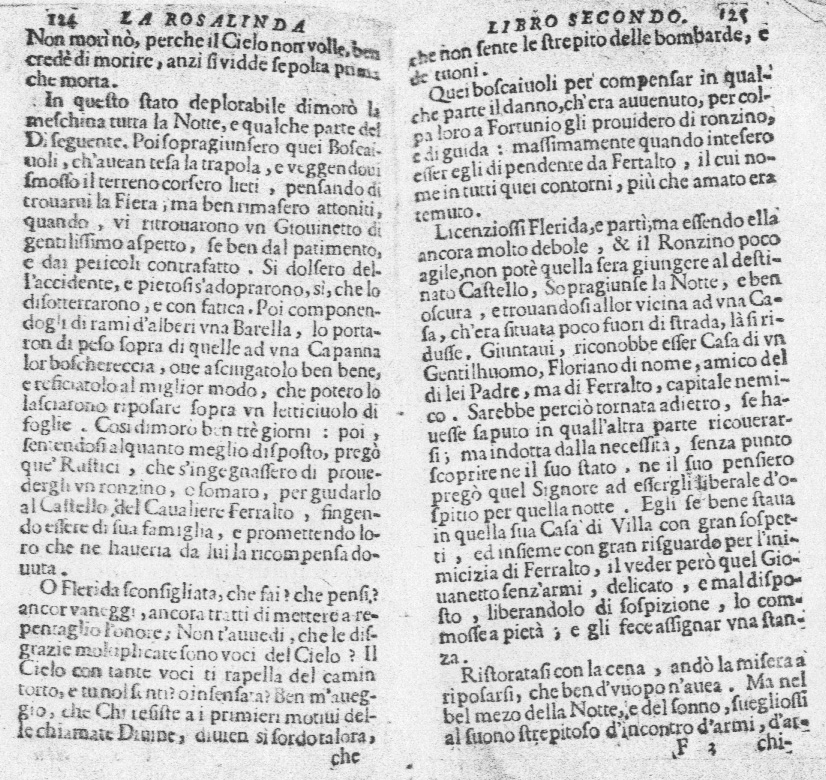 124 LA ROSALINDA
Non morì nò, perche il Cielo non volle, ben
credè di morire, anzi si vidde sepolta prima
che morta.
In questo stato deplorabile dimorò la
meschina tutta la Notte, e qualche parte del
Dì seguente. Poi sopragiunsero quei Boscai-
uoli, ch'auean tesa la trapola, e veggendoui
smosso il terreno corsero lieti, pensando di
trouarui la Fiera; ma ben rimasero attoniti,
quando, vi ritrouarono vn Giouinetto di
gentilissimo aspetto, se ben dal patimento,
e dai pericoli contrafatto. Si dolsero del-
l'accidente, e pietosi s'adoprarono, sì, che lo
disotterrarono, e con fatica. Poi componen-
dogli di rami d'alberi vna Barella, lo porta-
ron di peso sopra di quelle ad vna Capanna
lor boschereccia, oue asciugatolo ben bene,
e reficiatolo al miglior modo, che potero lo
lasciarono riposare sopra vn letticiuolo di
foglie. Così dimorò ben trè giorni: poi,
sentendosi alquanto meglio disposto, pregò
que' Rustici, che s'ingegnassero di proue-
dergli vn ronzino, e somaro, per guidarlo
al Castello del Caualiere Ferralto, fingen-
do essere di sua famiglia, e promettendo lo-
ro che ne haueria da lui la ricompensa do-
uuta.
O Flerida sconsigliata, che fai? che pensi?
ancor vaneggi, ancora tratti di mettere a re-
pentaglio l'onore; Non t'auuedi, che le dis-
grazie moltiplicate sono voci del Cielo? Il
Cielo con tante voci ti rapella del camin
torto, e tu nol senti? o insensata? Ben m'aueg-
gio, che Chi resiste a i primieri motiui del-
le chiamate Diuine, diuien si sordo talora,
che
LIBRO SECONDO. 125
che non sente le strepito delle bombarde, e
de tuoni.
Quei boscaiuoli per compensar in qual-
che parte il danno, ch'era auuenuto, per col-
pa loro a Fortunio gli prouidero di ronzino,
e di guida: massimamente quando intesero
esser egli dipendente da Fertalto, il cui no-
me in tutti quei contorni, più che amato era
temuto.
Licenziossi Flerida, e partì; ma essendo ella
ancora molto debole, & il Ronzino poco
agile, non potè quella sera giungere al desti-
nato Castello, Sopragiunse la Notte, e ben
oscura, e trouandosi allor vicina ad vna Ca-
sa, ch'era situata poco fuori di strada, là si ri-
dusse. Giuntaui, riconobbe esser Casa di vn
Gentilhuomo, Floriano di nome, amico del
di lei Padre, ma di Ferralto, capitale nemi-
co. Sarebbe perciò tornata adietro, se ha-
uesse saputo in quall'altra parte ricouerar-
si; ma indotta dalla necessità, senza punto
scoprire ne il suo stato, ne il suo pensiero
pregò quel Signore ad essergli liberale d'o-
spitio per quella notte. Egli se bene staua
in quella sua Casa di Villa con gran sospet-
ti, ed insieme con gran risguardo per l'ini-
micizia di Ferralto, il veder però quel Gio-
uanetto senz'armi, delicato, e mal dispo-
sto, liberandolo di sospizione, lo com-
mosse a pietà; e gli fece assignar vna stan-
za.
Ristoratasi con la cena, andò la misera a
riposarsi, che ben d'vuopo n'auea. Ma nel
bel mezo della Notte, e del sonno, suegliossi
al suono strepitoso d'incontro d'armi, d'ar-
F 3 chi-